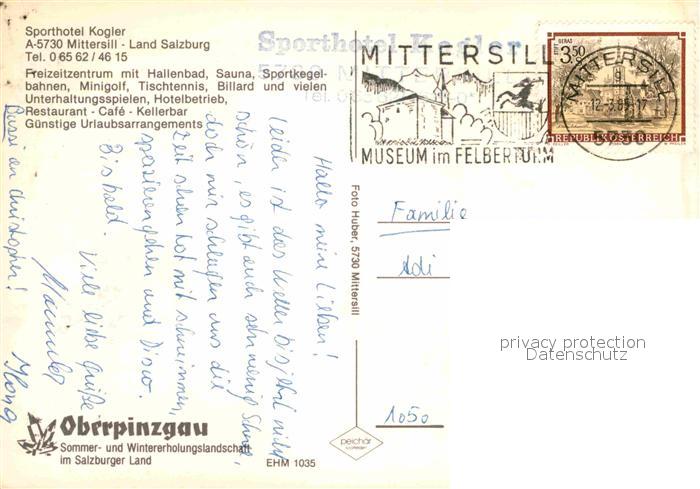 Sporthotel Kogler
A-5730 Mittersill - Land Salzburg
Tel. 0 65 62 / 46 15
Freizeitzentrum mit Hallenbad, Sauna, Sportkegel-
bahnen, Minigolf, Tischtennis, Billard und vielen
Unterhaltungsspielen, Hotelbetrieb,
Restaurant - Café - Kellerbar
Günstige Urlaubsarrangements
Sporthotel Kogler
5730
Tel.
MITTERSILL
MUSEUM im FELBERTURM
STIFT GERAS
3.50
REPUBLIK ÖSTERREICH
MITTERSILL
12.-3.85-17
5730
Hallo meine Lieben!
Leider ist das Wetter bis jetzt nicht
schön, es gibt auch sehr wenig Schnee,
doch wir schlagen uns die
Zeit schon tot mit schwimmen,
spazierengehen und Disco.
Bis bald.
Viele liebe Grüße
Bussi an Christopher!
Foto Huber, 5730 Mittersill
Familie
Adi
1050
privacy protection
Datenschutz
Oberpinzgau
Sommer- und Wintererholungslandschaft
im Salzburger Land
EHM 1035
peichär